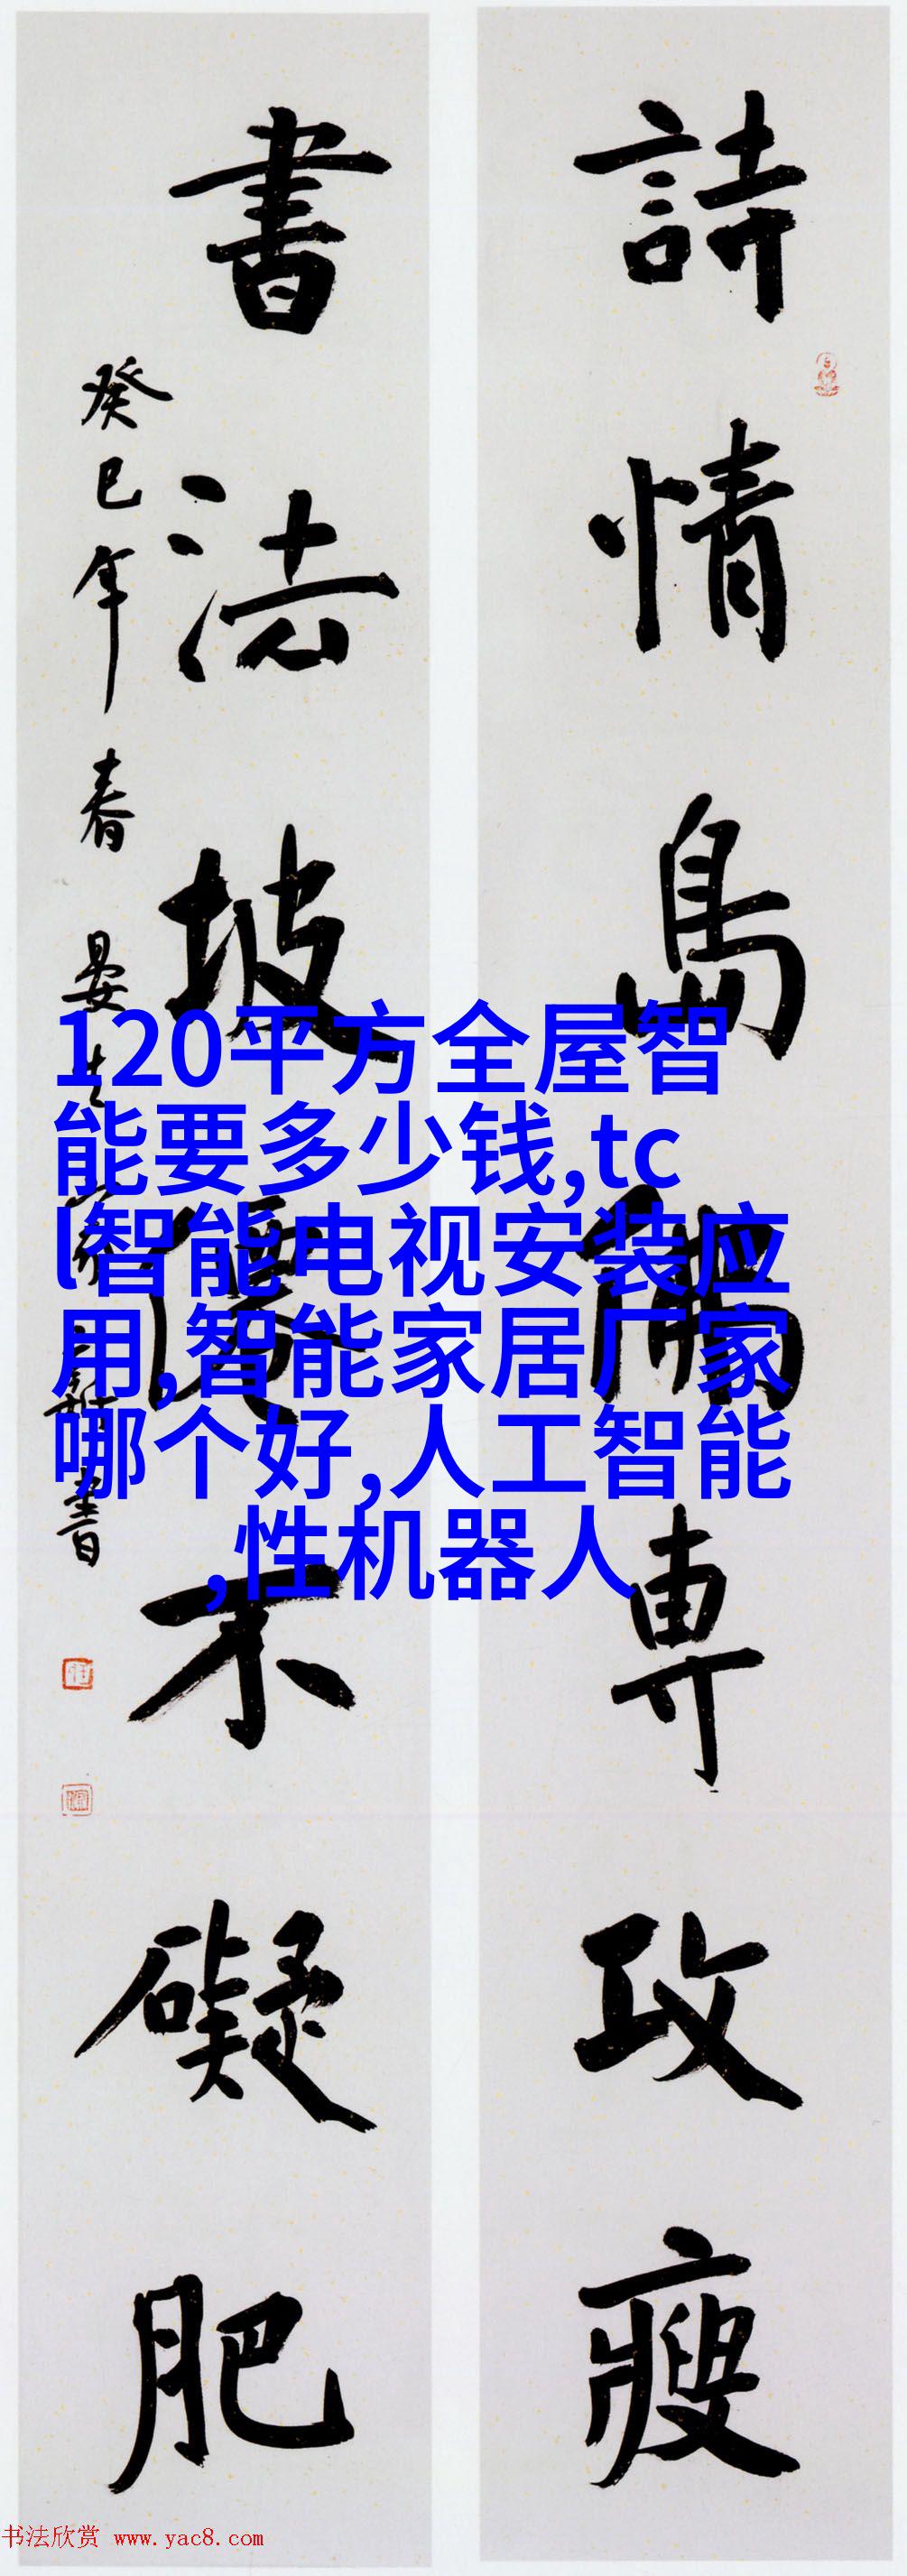 詩情島觹専攻瘦
書法坡僊不礙肥
癸巳年春晏生
書
120平方全屋智
能要多少钱,tc
l智能电视安装应
用,智能家居厂家
哪个好,人工智能
,性机器人
书法欣赏 www.yac8.com